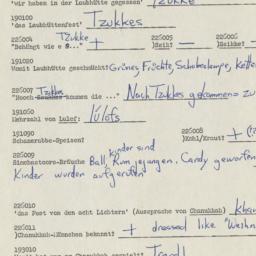 'wir haben in der Laubhütte gegessen' Tzukke
190100
'das Laubhüttenfest' Tzukkes
226004 Tzukke 226005 226006
"Behüngt wie e S..." + )Seih( — )Seihe( —
191020
Womit Laubhütte geschmückt? Grünes, Früchte, Schoberlampe, Kette
226007 Tzukkes
kommen die ..." Nach Tzukkes gekommen zu
191060
)Mehrzahl von Lulef: Lulofs
191090 226008
Schamrobbe-Speisen? )Kohl/Kraut? + (
226009 kinder sind
Simchastoore-Bräuche Ball, Rum gegangen. Candy geworfen
Kinder wurden aufgerufen
226010
'das Fest von den acht Lichtern' (Aussprache von Chanukkah) Khan
226011
)Chanukkah-Männchen bekannt? + dressed like "Weihn
193010
Trendl